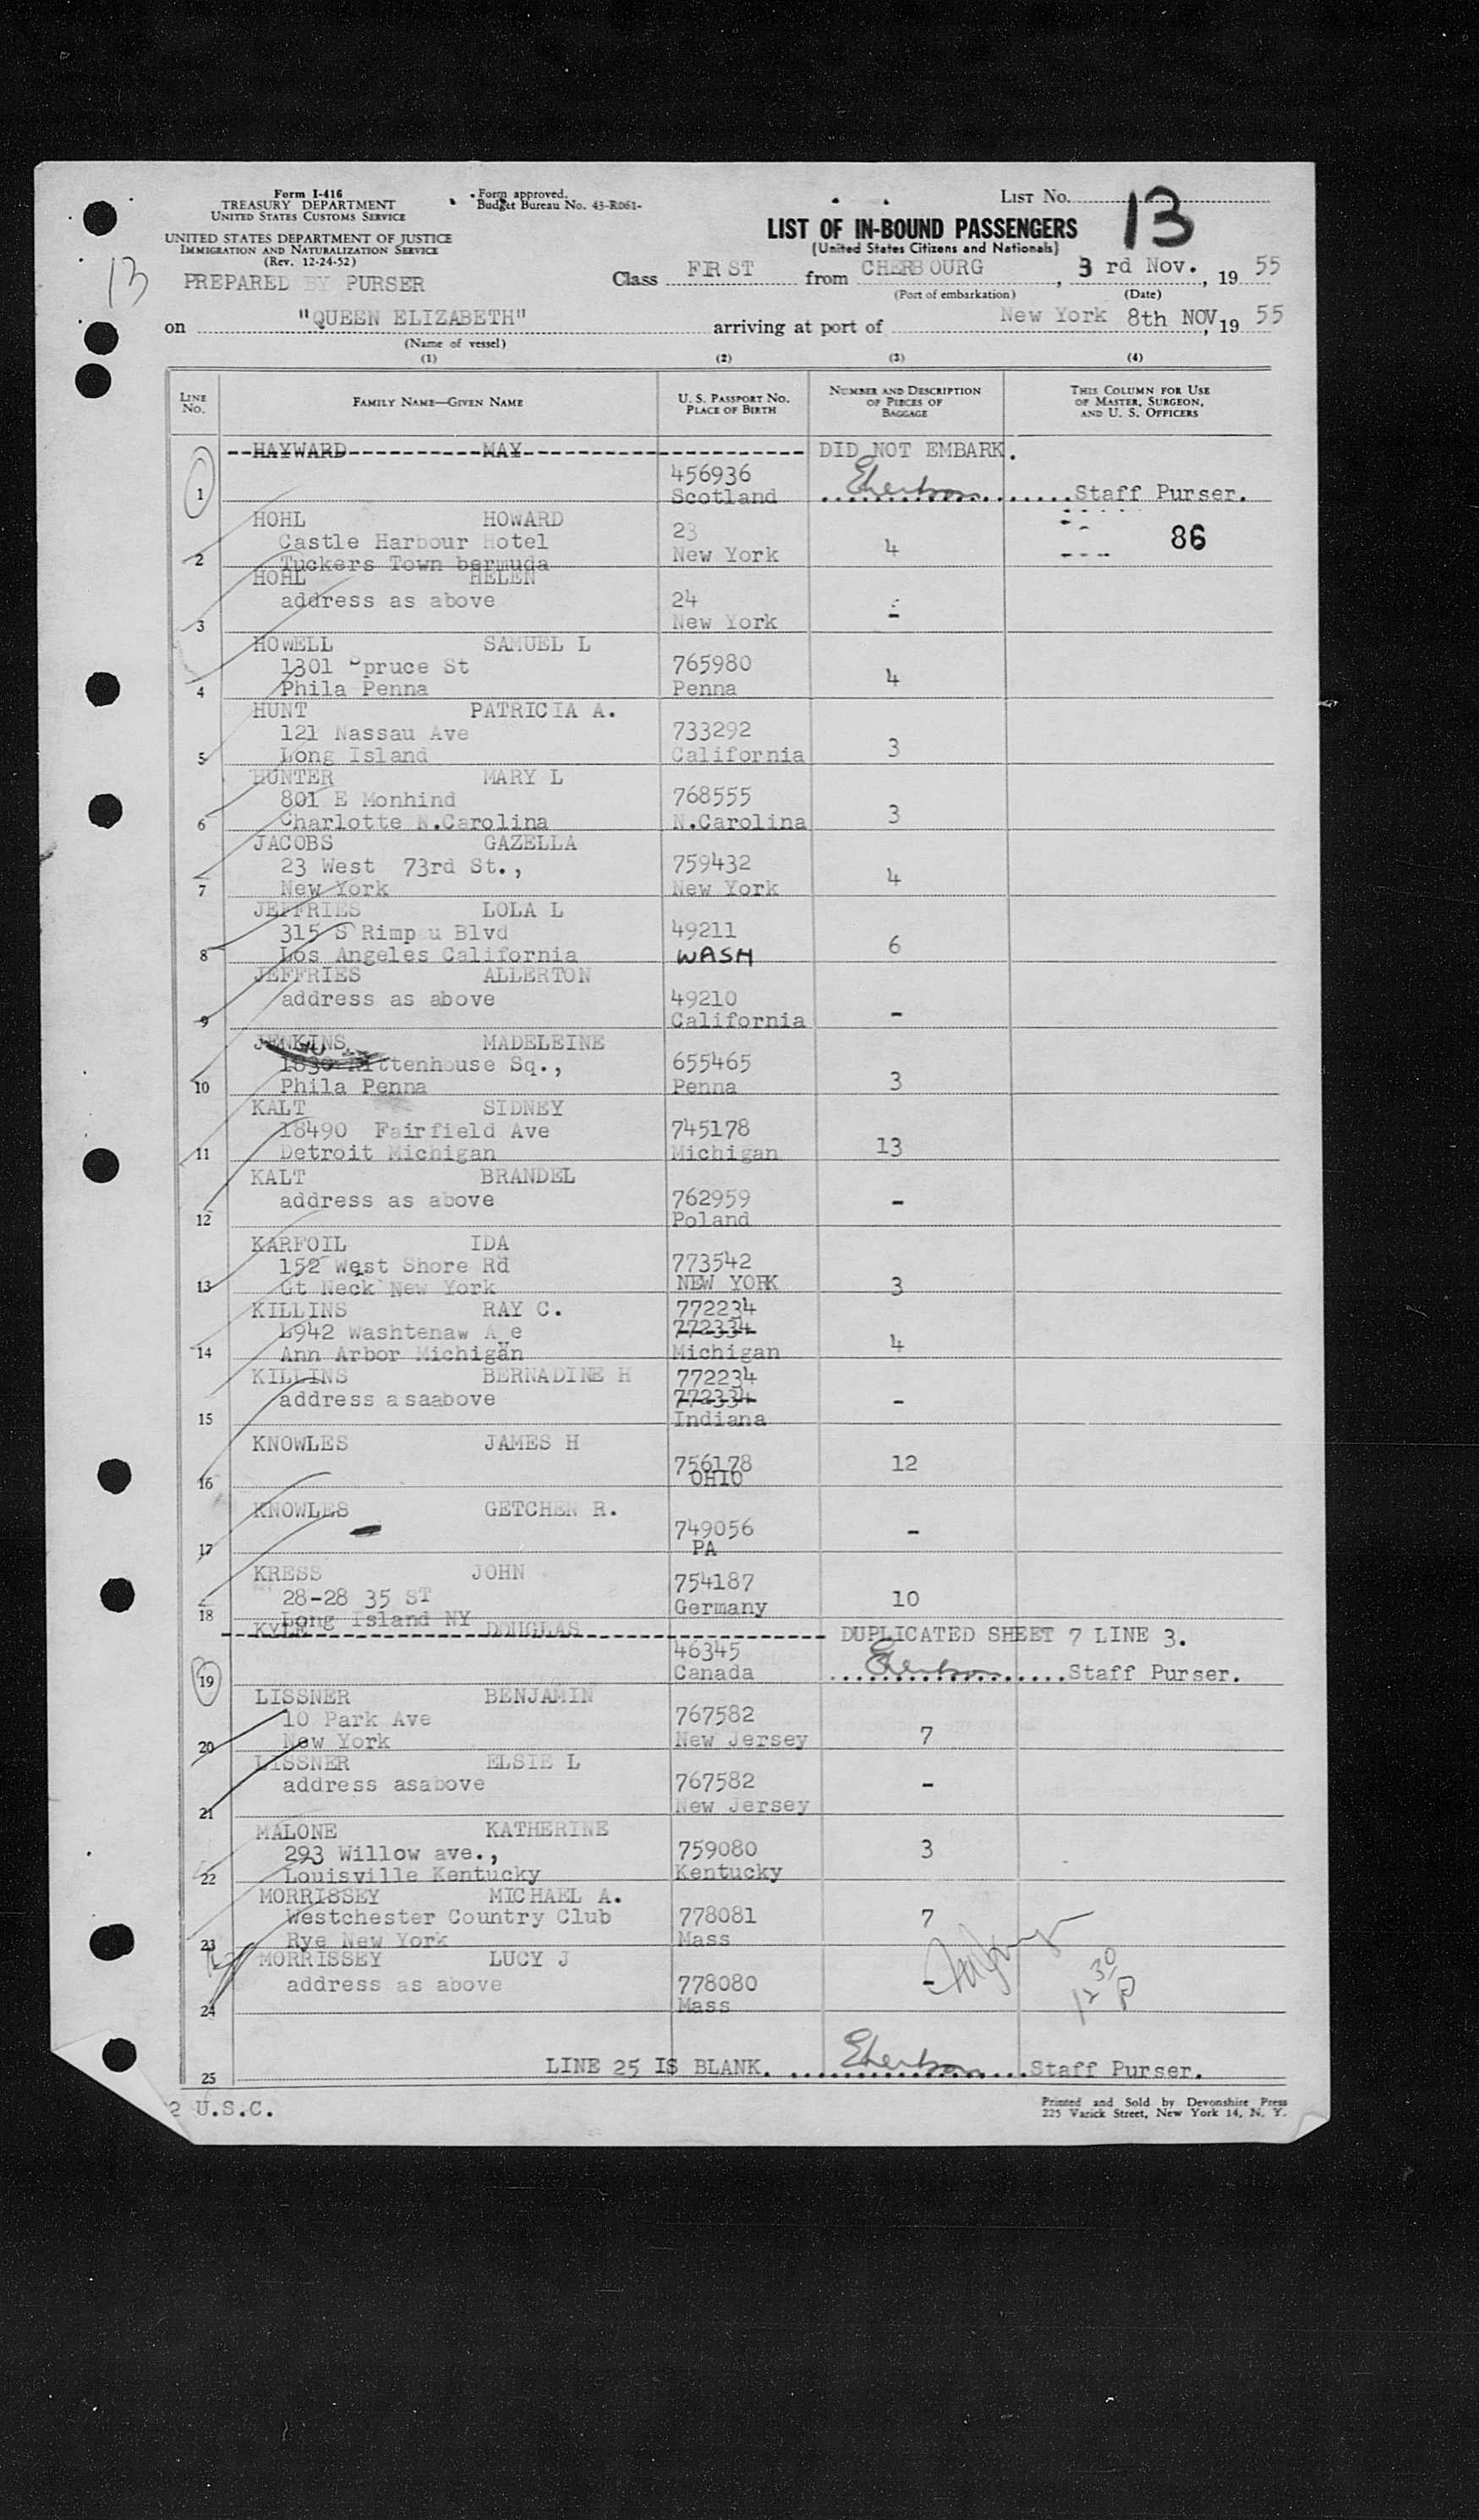 Form I-416
TREASURY DEPARTMENT
UNITED STATES CUSTOMS SERVICE
UNITED STATES DEPARTMENT OF JUSTICE
IMMIGRATION AND NATURALIZATION SERVICE
(Rev. 12-24-52)
PREPARED BY PURSER
Form approved.
Budget Bureau No. 43-R061-
LIST No. 13
LIST OF IN-BOUND PASSENGERS
(United States Citizens and Nationals)
13
Class FIRST from CHERBOURG, 3 rd Nov., 19 55
(Port of embarkation) (Date)
on "QUEEN ELIZABETH" arriving at port of New York 8th NOV, 19 55
(Name of vessel)
(1) (2) (3) (4)
LINE No. FAMILY NAME—GIVEN NAME U. S. PASSPORT NO. PLACE OF BIRTH NUMBER AND DESCRIPTION OF PIECES OF BAGGAGE THIS COLUMN FOR USE OF MASTER, SURGEON, AND U. S. OFFICERS
HAYWARD MAY DID NOT EMBARK.
456936
1 Scotland Staff Purser.
HOHL HOWARD
Castle Harbour Hotel 23 4 86
2 Tuckers Town bermuda New York
HOHL HELEN
address as above 24 -
3 New York
HOWELL SAMUEL L
1301 Spruce St 765980 4
4 Phila Penna Penna
HUNT PATRICIA A.
121 Nassau Ave 733292 3
5 Long Island California
HUNTER MARY L
801 E Monhind 768555 3
6 Charlotte N.Carolina N.Carolina
JACOBS GAZELLA
23 West 73rd St., 759432 4
7 New York New York
JEFFRIES LOLA L
315 S Rimp u Blvd 49211 6
8 Los Angeles California WASH
JEFFRIES ALLERTON
address as above 49210 -
9 California
JENKINS MADELEINE
1830 Rittenhouse Sq., 655465 3
10 Phila Penna Penna
KALT SIDNEY
18490 Fairfield Ave 745178 13
11 Detroit Michigan Michigan
KALT BRANDEL
address as above 762959 -
12 Poland
KARFOIL IDA
152 West Shore Rd 773542 3
13 Gt Neck New York NEW YORK
KILLINS RAY C. 772234
4942 Washtenaw A e 772334 4
14 Ann Arbor Michigan Michigan
KILLINS BERNADINE H 772234
address asaabove 772334 -
15 Indiana
KNOWLES JAMES H
756178 12
16 OHIO
KNOWLES GETCHEN R.
749056 -
17 PA
KRESS JOHN
28-28 35 ST 754187 10
18 Long Island NY Germany
KYLE DOUGLAS DUPLICATED SHEET 7 LINE 3.
46345
19 Canada Staff Purser.
LISSNER BENJAMIN
10 Park Ave 767582 7
20 New York New Jersey
LISSNER ELSIE L
address asabove 767582 -
21 New Jersey
MALONE KATHERINE
293 Willow ave., 759080 3
22 Louisville Kentucky Kentucky
MORRISSEY MICHAEL A.
Westchester Country Club 778081 7
23 Rye New York Mass
MORRISSEY LUCY J
address as above 778080 - 12 30 P
24 Mass
25 LINE 25 IS BLANK. Staff Purser.
2 U.S.C.
Printed and Sold by Devonshire Press
225 Varick Street, New York 14, N. Y.